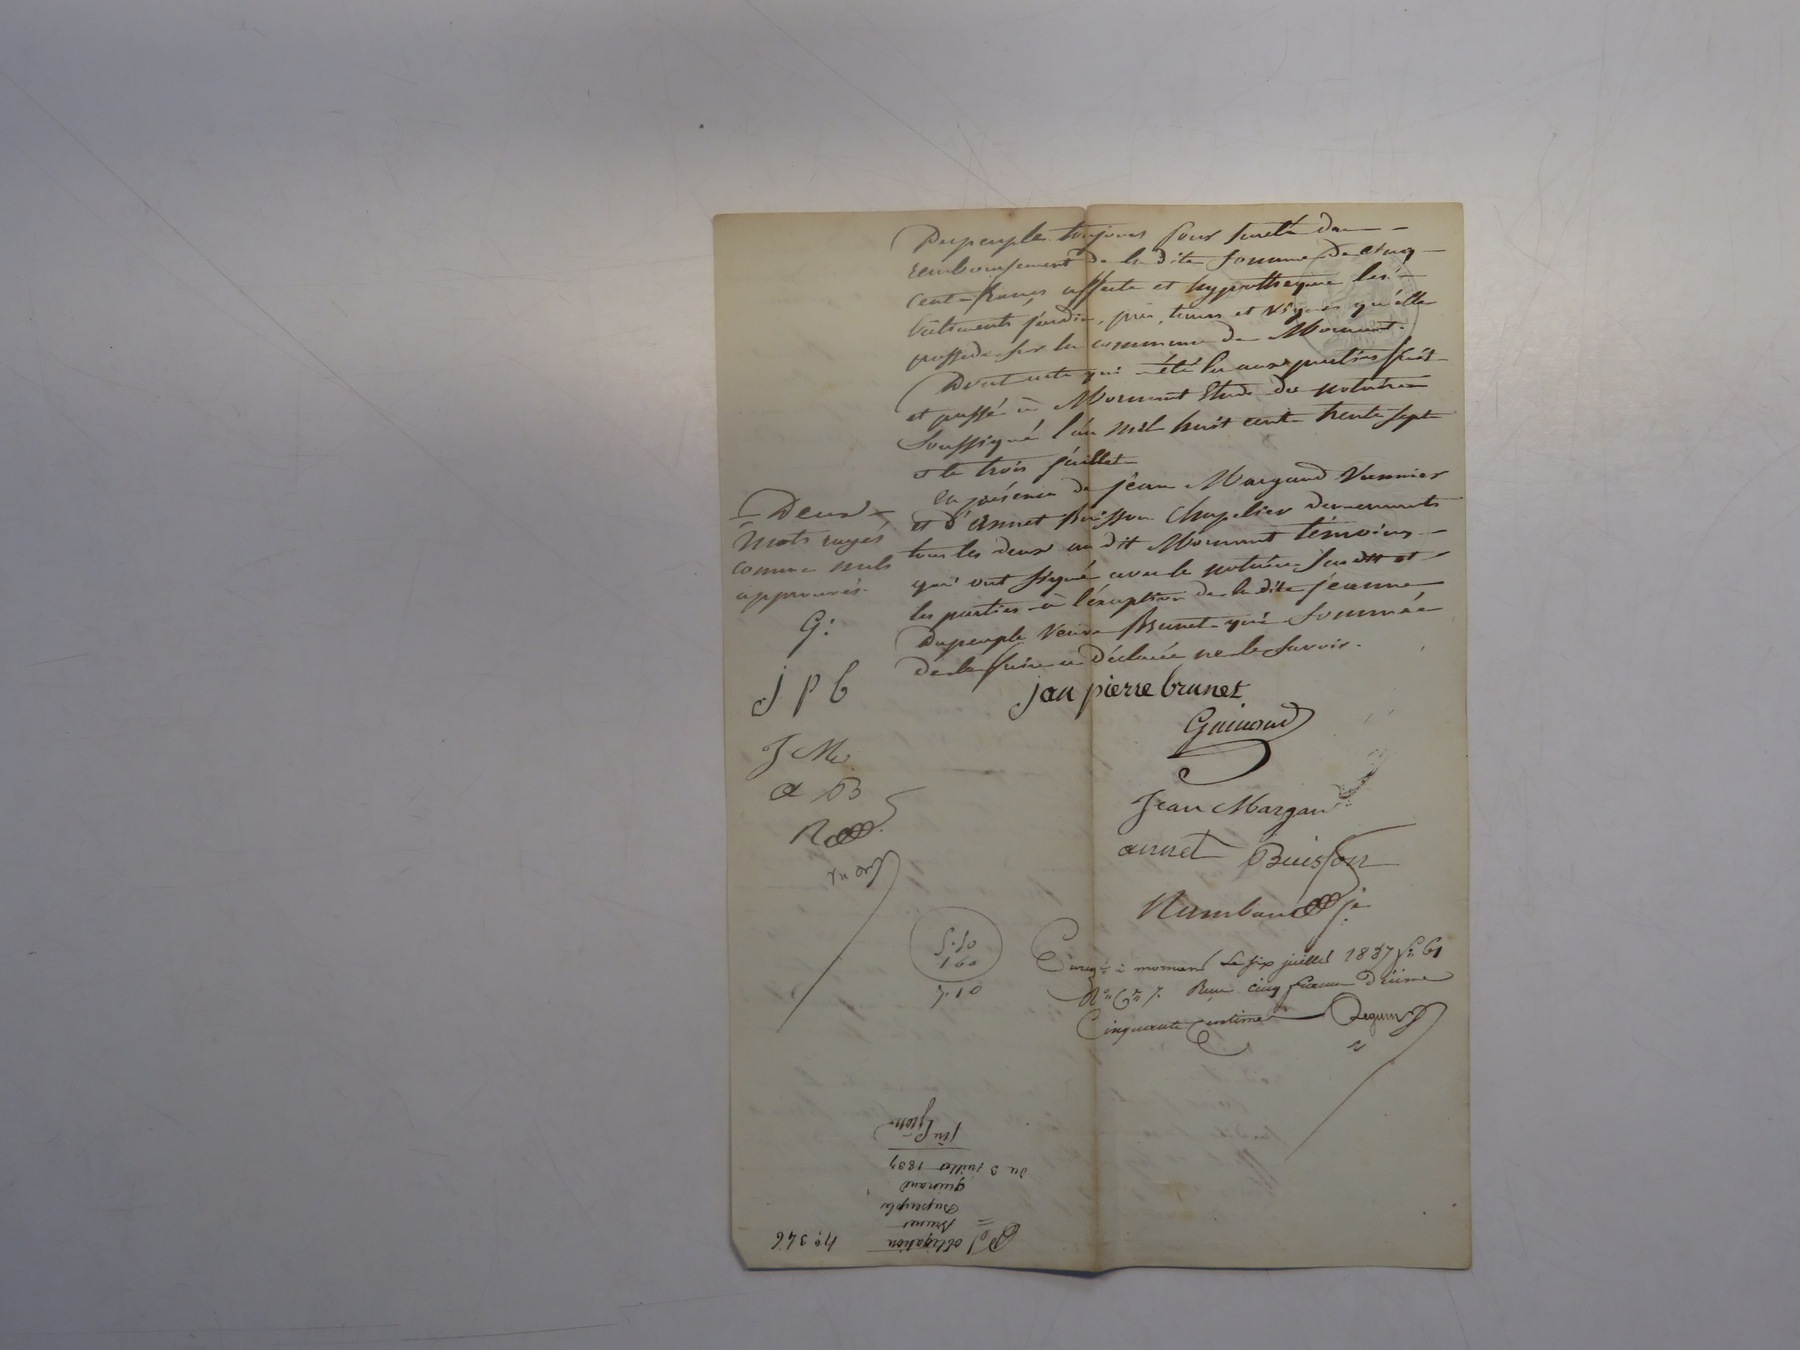 Dupeuple toujours pour sureté du
remboursement de la dite somme de cinq
cent francs affecte et hypothèque les
bâtiments, jardin, prés, terres et vignes qu'elle
possède sur la commune de Mornant.
Dont acte qui a été lu aux parties fait
et passé à Mornant Etude du notaire
soussigné l'an mil huit cent trente sept
et le trois juillet
en présence de jean Margand
et d'annet Buisson Chapelier demeurants
tous les deux au dit Mornant témoins
qui ont signé avec le notaire susdit et
les parties à l'éxception de la dite jeanne
Dupeuple Veuve Brunet qui sommée
de le faire a déclarée ne le savoir.
Deux
mots rayés
comme nuls
approuvés.
G:
j p b
J M
a B
R
jan pierre brunet
Guinand
Jean Margand
annet Buisson
Enregé à mornant le six juillet 1837 fo 61
Ro Ce 7. Reçu cinq francs Dixime
Cinquante Centimes
5.50
1 60
7.10
No 346
obligation
Brunet
Dupeuple
guinand
du 3 juillet 1837